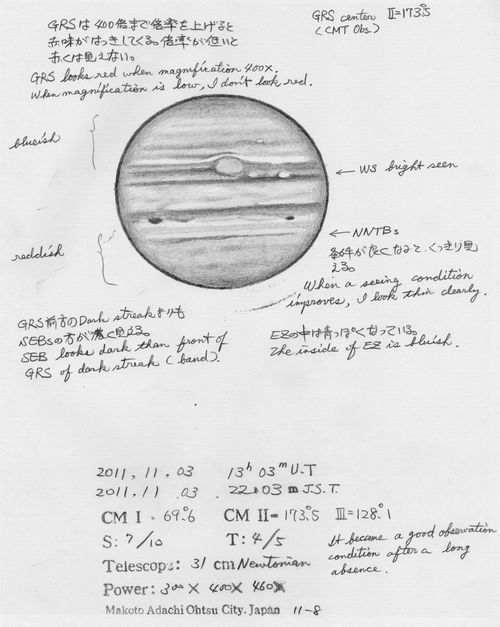 GRSは400倍まで倍率を上げると
赤味がはっきしてくる。倍率が低いと
赤くは見えない。
GRS looks red when magnification 400x.
When magnification is low, I don't look red.
GRS center II=173°.5
(CMT Obs.)
blueish
← WS bright seen
reddish
← NNTBs
条件が良くなると、くっきり見
える。
When a seeing condition
improves, I look thin clearly.
GRS前方のDark streakよりも
SEBsの方が濃く見える。
SEB looks dark than front of
GRS of dark streak (band).
EZの中は青っぽくなっている。
The inside of EZ is bluish.
2011, 11. 03 13h 03m U.T
2011. 11 .03 22:03 m J.S.T.
CM I - 69°.6 CM II= 173°.5 III=128°.1
S: 7/10 T: 4/5
Telescope: 31 cm Newtonian
Power: 300× 400× 460×
Makoto Adachi Ohtsu City. Japan 11-8
It became a good observation
condition after a long
absence.